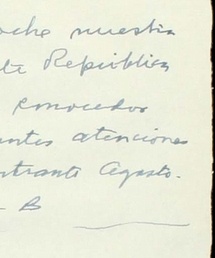 oche nuestra
te República
conocedor
antes atenciones
ntrante Agosto.
- B